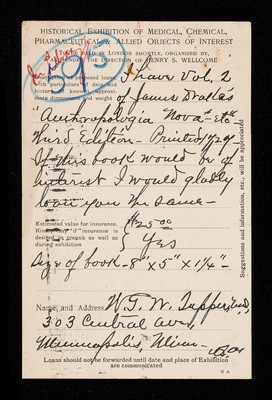 HISTORICAL EXHIBITION OF MEDICAL, CHEMICAL,
PHARMACEUTICAL & ALLIED OBJECTS OF INTEREST
IN LONDON SHORTLY, ORGANISED BY,
THE DIRECTION OF HENRY S. WELLCOME
593
I have Vol. 2
of James Drake's
"Anthropologia Nova" etc
Third Edition - Printed 1727-
If this book would be of
interest I would gladly
loan you the same-
Estimated value for insurance.
Kindly say if insurance is
desired in transit as well as
during exhibition
$25.00
Yes
Size of book - 8" x 5" x 1¼" -
Name and Address W. T. W. Tupper
303 Central Ave,
Minneapolis Minn
U.S.A.
Loans should not be forwarded until date and place of Exhibition
are communicated
Suggestions and information, etc., will be appreciated